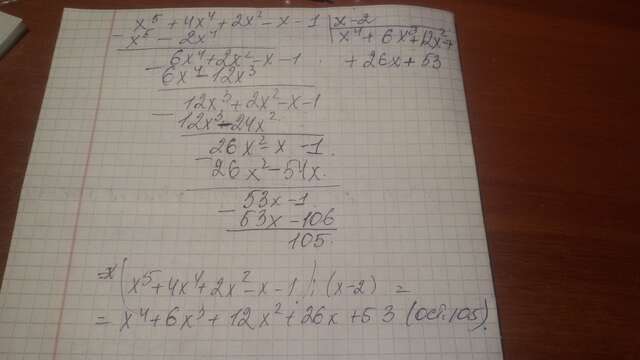 x⁵ + 4x⁴ + 2x² - x - 1 | x - 2
- x⁵ - 2x⁴ | x⁴ + 6x³ + 12x² +
- 6x⁴ + 2x² - x - 1 + 26x + 53
6x⁴ - 12x³
12x³ + 2x² - x - 1
- 12x³ - 24x²
26x² - x - 1
- 26x² - 54x
53x - 1
- 53x - 106
105
(x⁵ + 4x⁴ + 2x² - x - 1) : (x - 2) =
= x⁴ + 6x³ + 12x² + 26x + 53 (ост. 105)